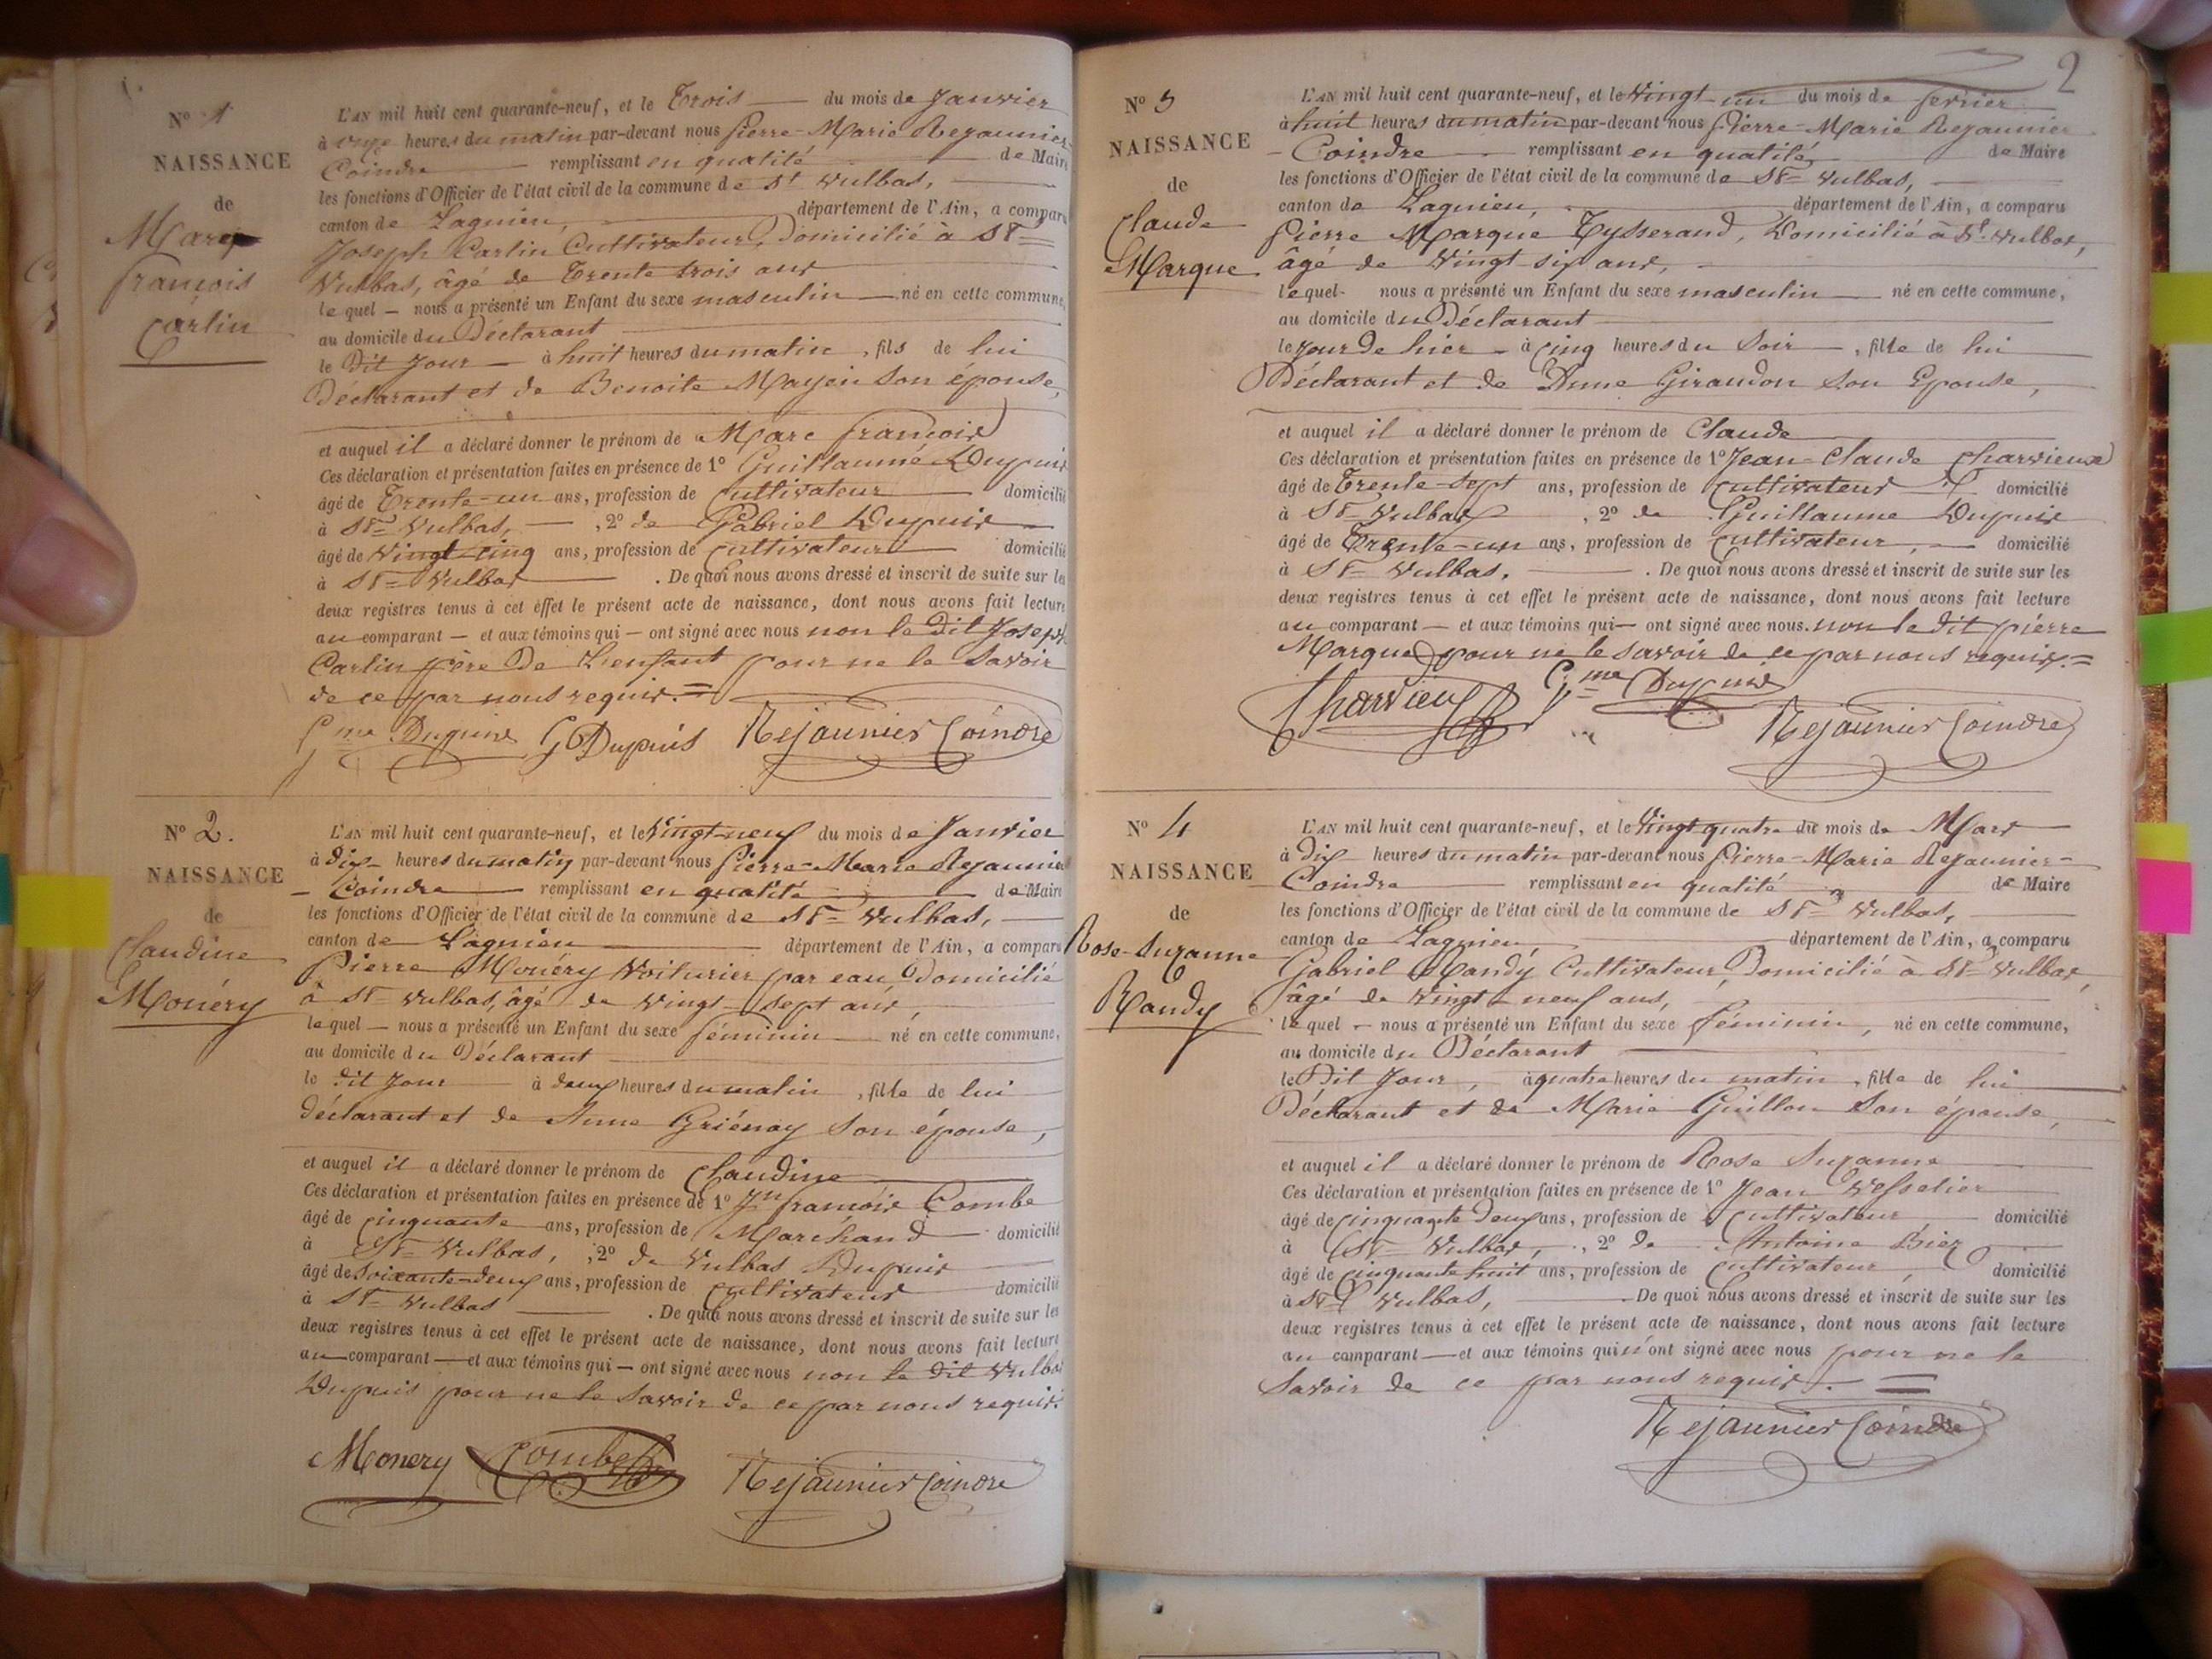 N° 1
NAISSANCE
de
Marc
françois
Carlin
L'AN mil huit cent quarante-neuf, et le Trois du mois de Janvier
à onze heures du matin par-devant nous Pierre-Marie Rejaunier-
Coindre remplissant en qualité de Maire
les fonctions d'Officier de l'état civil de la commune de St Vulbas,
canton de Lagnieu, département de l'Ain, a comparu
Joseph Carlin Cultivateur, Domicilié à St=
Vulbas, âgé de Trente trois ans
lequel nous a présenté un Enfant du sexe masculin né en cette commune,
au domicile du Déclarant
le Dit Jour à huit heures du matin, fils de lui
Déclarant et de Benoite Mayen son épouse,
et auquel il a déclaré donner le prénom de Marc françois
Ces déclaration et présentation faites en présence de 1° Guillaume Dupuis
âgé de Trente-un ans, profession de Cultivateur domicilié
à St= Vulbas, , 2° de Gabriel Dupuis
âgé de Vingt-cinq ans, profession de cultivateur domicilié
à St= Vulbas . De quoi nous avons dressé et inscrit de suite sur les
deux registres tenus à cet effet le présent acte de naissance, dont nous avons fait lecture
au comparant — et aux témoins qui — ont signé avec nous non le Dit Joseph
Carlin père De L'enfant pour ne le Savoir
de ce par nous requis.=
Gme Dupuis G Dupuis Rejaunier Coindre
N° 2.
NAISSANCE
de
Claudine
Monéry
L'AN mil huit cent quarante-neuf, et le Vingt-neuf du mois de Janvier
à dix heures du matin par-devant nous Pierre-Marie Rejaunier
- Coindre remplissant en qualité de Maire
les fonctions d'Officier de l'état civil de la commune de St= Vulbas,
canton de Lagnieu département de l'Ain, a comparu
Pierre Monéry Voiturier par eau Domicilié
à St= Vulbas, âgé de Vingt-sept ans,
lequel — nous a présenté un Enfant du sexe féminin né en cette commune,
au domicile du Déclarant
le dit Jour à deux heures du matin, fille de lui
déclarant et de Anne Griénay Son épouse,
et auquel il a déclaré donner le prénom de Claudine
Ces déclaration et présentation faites en présence de 1° Jn françois Combe
âgé de cinquante ans, profession de Marchand domicilié
à St= Vulbas, , 2° de Vulbas Dupuis
âgé de Soixante-deux ans, profession de cultivateur domicilié
à St= Vulbas . De quoi nous avons dressé et inscrit de suite sur les
deux registres tenus à cet effet le présent acte de naissance, dont nous avons fait lecture
au comparant — et aux témoins qui — ont signé avec nous non le Dit Vulbas
Dupuis pour ne le Savoir de ce par nous requis.
Monery Combe Rejaunier Coindre
2
N° 3
NAISSANCE
de
Claude
Marque
L'AN mil huit cent quarante-neuf, et le Vingt un du mois de février
à huit heures du matin par-devant nous Pierre-Marie Rejaunier
- Coindre remplissant en qualité de Maire
les fonctions d'Officier de l'état civil de la commune de St= Vulbas,
canton de Lagnieu, département de l'Ain, a comparu
Pierre Marque Tysserand, Domicilié à St. Vulbas,
âgé de Vingt-six ans,
lequel nous a présenté un Enfant du sexe masculin né en cette commune,
au domicile du Déclarant
le jour de hier à cinq heures du Soir, fille de lui
Déclarant et de Anne Giraudon Son Epouse,
et auquel il a déclaré donner le prénom de Claude
Ces déclaration et présentation faites en présence de 1° Jean-Claude Charvieux
âgé de Trente-Sept ans, profession de Cultivateur domicilié
à St= Vulbas , 2° de Guillaume Dupuis
âgé de Trente-un ans, profession de cultivateur, domicilié
à St= Vulbas. . De quoi nous avons dressé et inscrit de suite sur les
deux registres tenus à cet effet le présent acte de naissance, dont nous avons fait lecture
au comparant — et aux témoins qui — ont signé avec nous. non le dit pierre
Marque pour ne le savoir de ce par nous requis.=
Charvieux Gme Dupuis
Rejaunier Coindre
N° 4
NAISSANCE
de
Rose-Suzanne
Randy
L'AN mil huit cent quarante-neuf, et le Vingt quatre du mois de Mars
à dix heures du matin par-devant nous Pierre-Marie Rejaunier-
Coindre remplissant en qualité de Maire
les fonctions d'Officier de l'état civil de la commune de St= Vulbas,
canton de Lagnieu, département de l'Ain, a comparu
Gabriel Randy Cultivateur, Domicilié à St= Vulbas,
âgé de Vingt-neuf ans,
lequel — nous a présenté un Enfant du sexe féminin, né en cette commune,
au domicile du Déclarant
le Dit Jour, à quatre heures du matin, fille de lui
Déclarant et de Marie Guillon Son épouse,
et auquel il a déclaré donner le prénom de Rose Suzanne
Ces déclaration et présentation faites en présence de 1° Jean Vesselier
âgé de cinquante deux ans, profession de cultivateur domicilié
à St= Vulbas, , 2° de Antoine Bier
âgé de cinquante huit ans, profession de cultivateur, domicilié
à St= Vulbas, . De quoi nous avons dressé et inscrit de suite sur les
deux registres tenus à cet effet le présent acte de naissance, dont nous avons fait lecture
au comparant — et aux témoins qui n'ont signé avec nous pour ne le
Savoir de ce par nous requis. =
Rejaunier Coindre